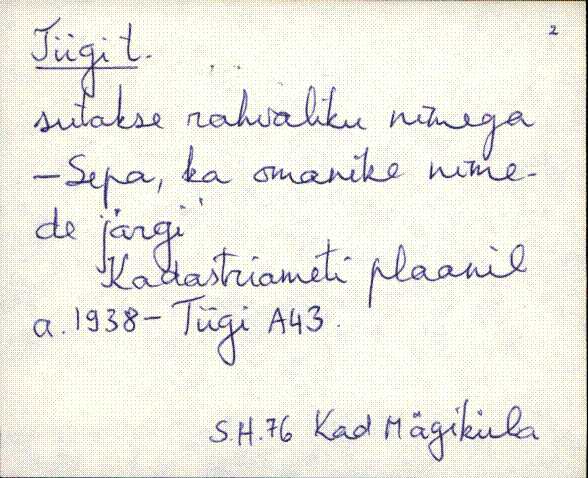 2
Tiigi t.
sutakse rahvaliku nimega
– Sepa, ka omanike nime-
de järgi"
Kadastriameti plaanil
a. 1938 – Tiigi A43.
S.H.76 Kad Mägiküla